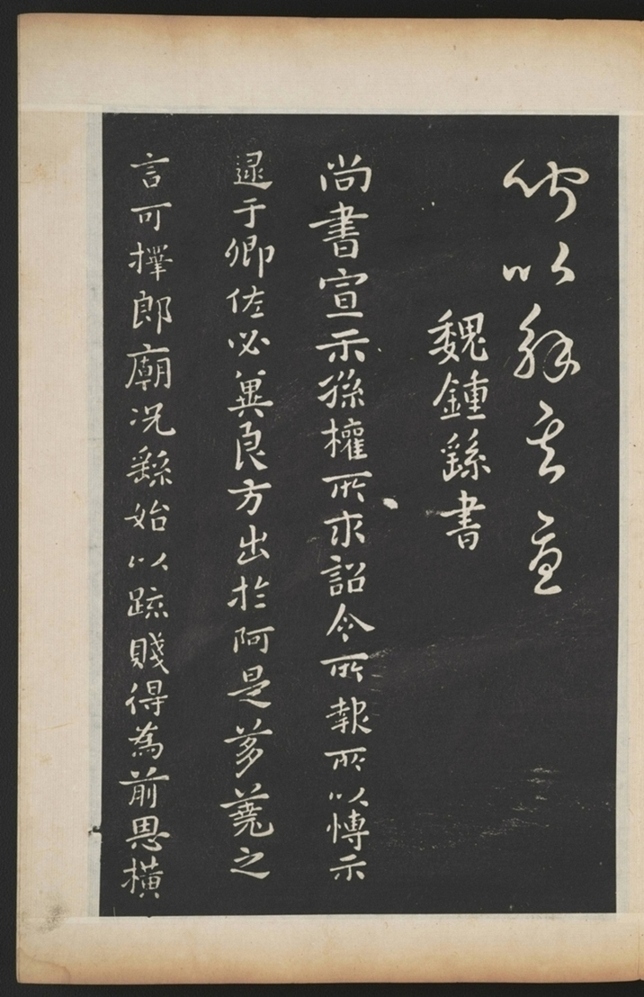 以解
魏鍾繇書
尚書宣示孫權所求詔令所報所以愽示
逮于卿佐必冀良方出於阿是芻蕘之
言可擇郎廟況繇始以疏賤得為前恩橫